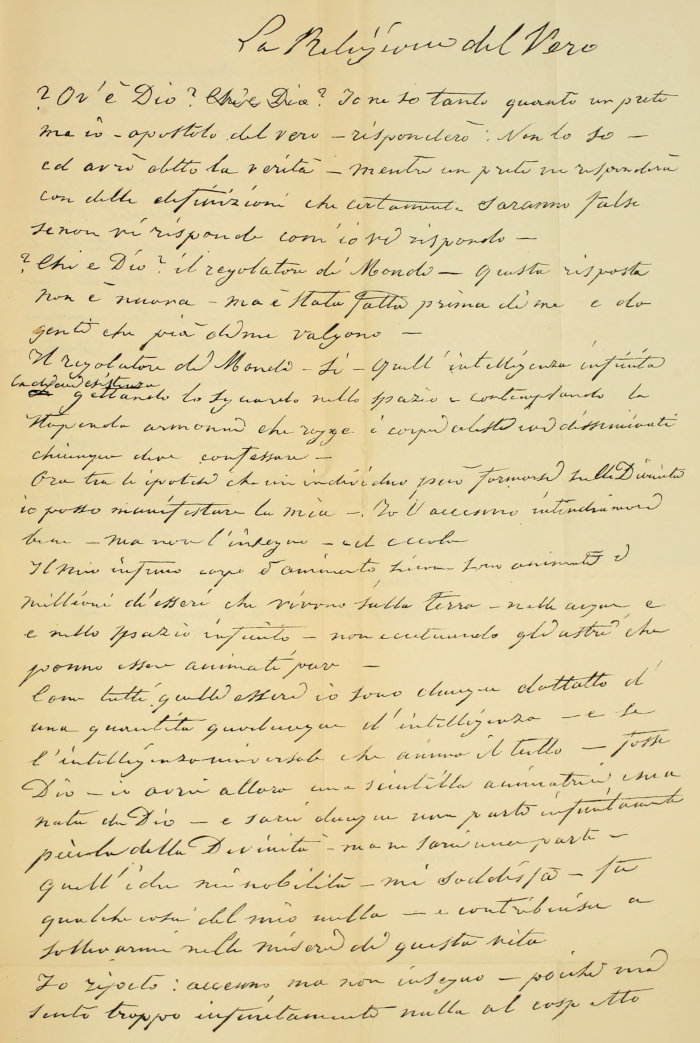 La Religione del Vero
? Ov'è Dio? Chi è Dio? Io ne so tanto quanto un prete
ma io - apostolo del vero - risponderò: Non lo so -
ed avrò detto la verità - mentre un prete ne risponderà
con delle definizioni che certamente saranno false
se non vi risponde com'io vi rispondo -
? Chi è Dio? il regolatore di Mondi - Questa risposta
non è nuova - ma è stata fatta prima di me e da
genti che più di me valgono -
Il regolatore di Mondi - Sì - quell'intelligenza infinita
la di cui esistenza
gettando lo sguardo nello spazio e contemplando la
stupenda armonia che regge i corpi celesti ivi disseminati
chiunque deve confessare -
Ora tra le ipotesi che un individuo può formarsi sulla Divinità
io posso manifestare la mia - Io l'accenno intendiamoci
bene - ma non l'insegno - ed eccola
Il mio infimo corpo è animato siccome sono animati i
millioni d'esseri che vivono sulla terra - nelle acque e
e nello spazio infinito - non eccettuando gli astri che
ponno essere animati pure -
Com tutti quelli esseri io sono dunque dottatto di
una quantità qualunque d'intelligenza - e se
l'intelligenza universale che anima il tutto - fosse
Dio - io avrei allora una scintilla animatrice ema
nata da Dio - e sarei dunque una parte infinitamente
piccola della Divinità - ma ne sarei una parte -
Quell'idea mi nobilita - mi soddisfa - fa
qualche cosa del mio nulla - e contribuisce a
sollevarmi nelle miserie di questa vita
Io ripeto: accenno ma non insegno - poiché mi
sento troppo infinitamente nulla al cospetto